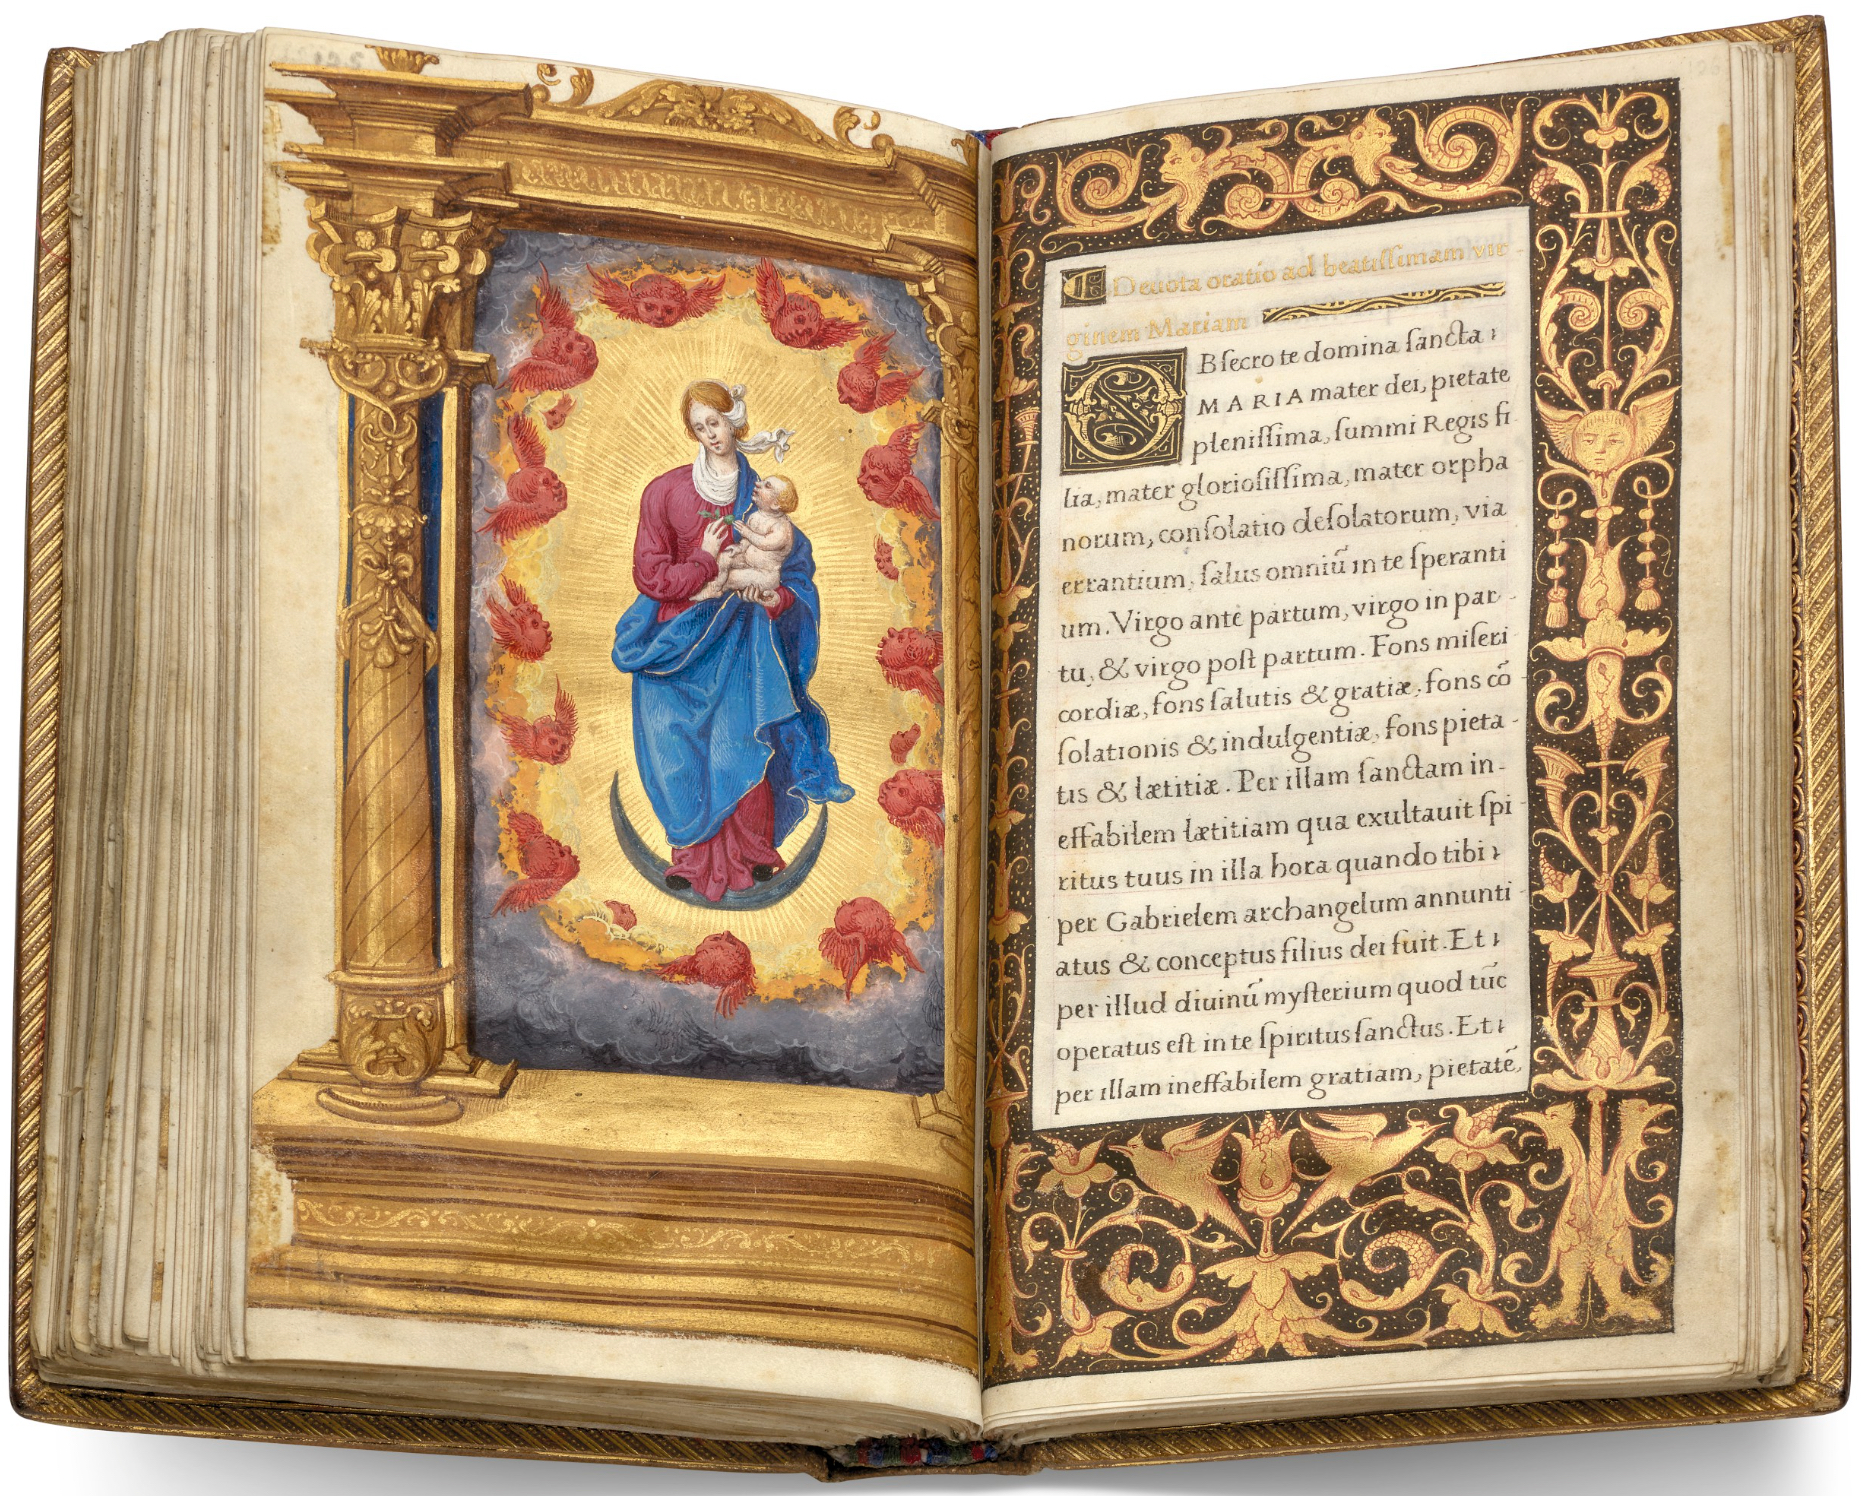 Deuota oratio ad beatissimam vir-
ginem Mariam
OBsecro te domina sancta
MARIA mater dei, pietate
plenissima, summi Regis fi
lia, mater gloriosissima, mater orpha
norum, consolatio desolatorum, via
errantium, salus omniũ in te speranti
um. Virgo ante partum, virgo in par-
tu, & virgo post partum. Fons miseri
cordiæ, fons salutis & gratiæ, fons cõ
solationis & indulgentiæ, fons pieta-
tis & lætitiæ. Per illam sanctam in-
effabilem lætitiam qua exultauit spi
ritus tuus in illa hora quando tibi
per Gabrielem archangelum annunti
atus & conceptus filius dei fuit. Et
per illud diuinũ mysterium quod tũc
operatus est in te spiritus sanctus. Et
per illam ineffabilem gratiam, pietatẽ,